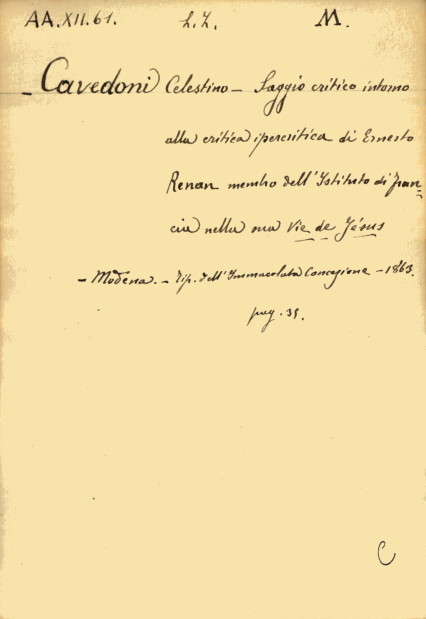 AA.XII.61. L.Z. M.
- Cavedoni Celestino - Saggio critico intorno
alla critica ipercritica di Ernesto
Renan membro dell'Istituto di Fran=
cia nella sua Vie de Jésus
- Modena. - Tip. dell'Immacolata Concezione - 1863.
pag. 35.
C